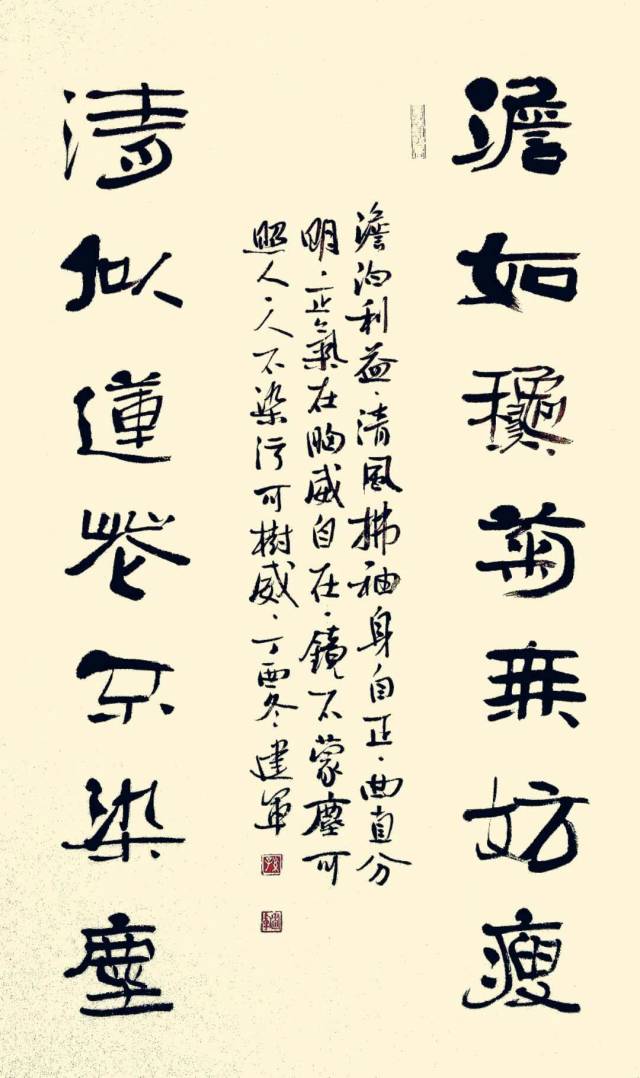 澹如龝菊無妨瘦
澹泊利益·清風拂袖身自正·曲直分
明·正氣在胸威自在·鏡不蒙塵可
照人·人不染污可樹威·丁酉冬·建軍
清似蓮花不染塵